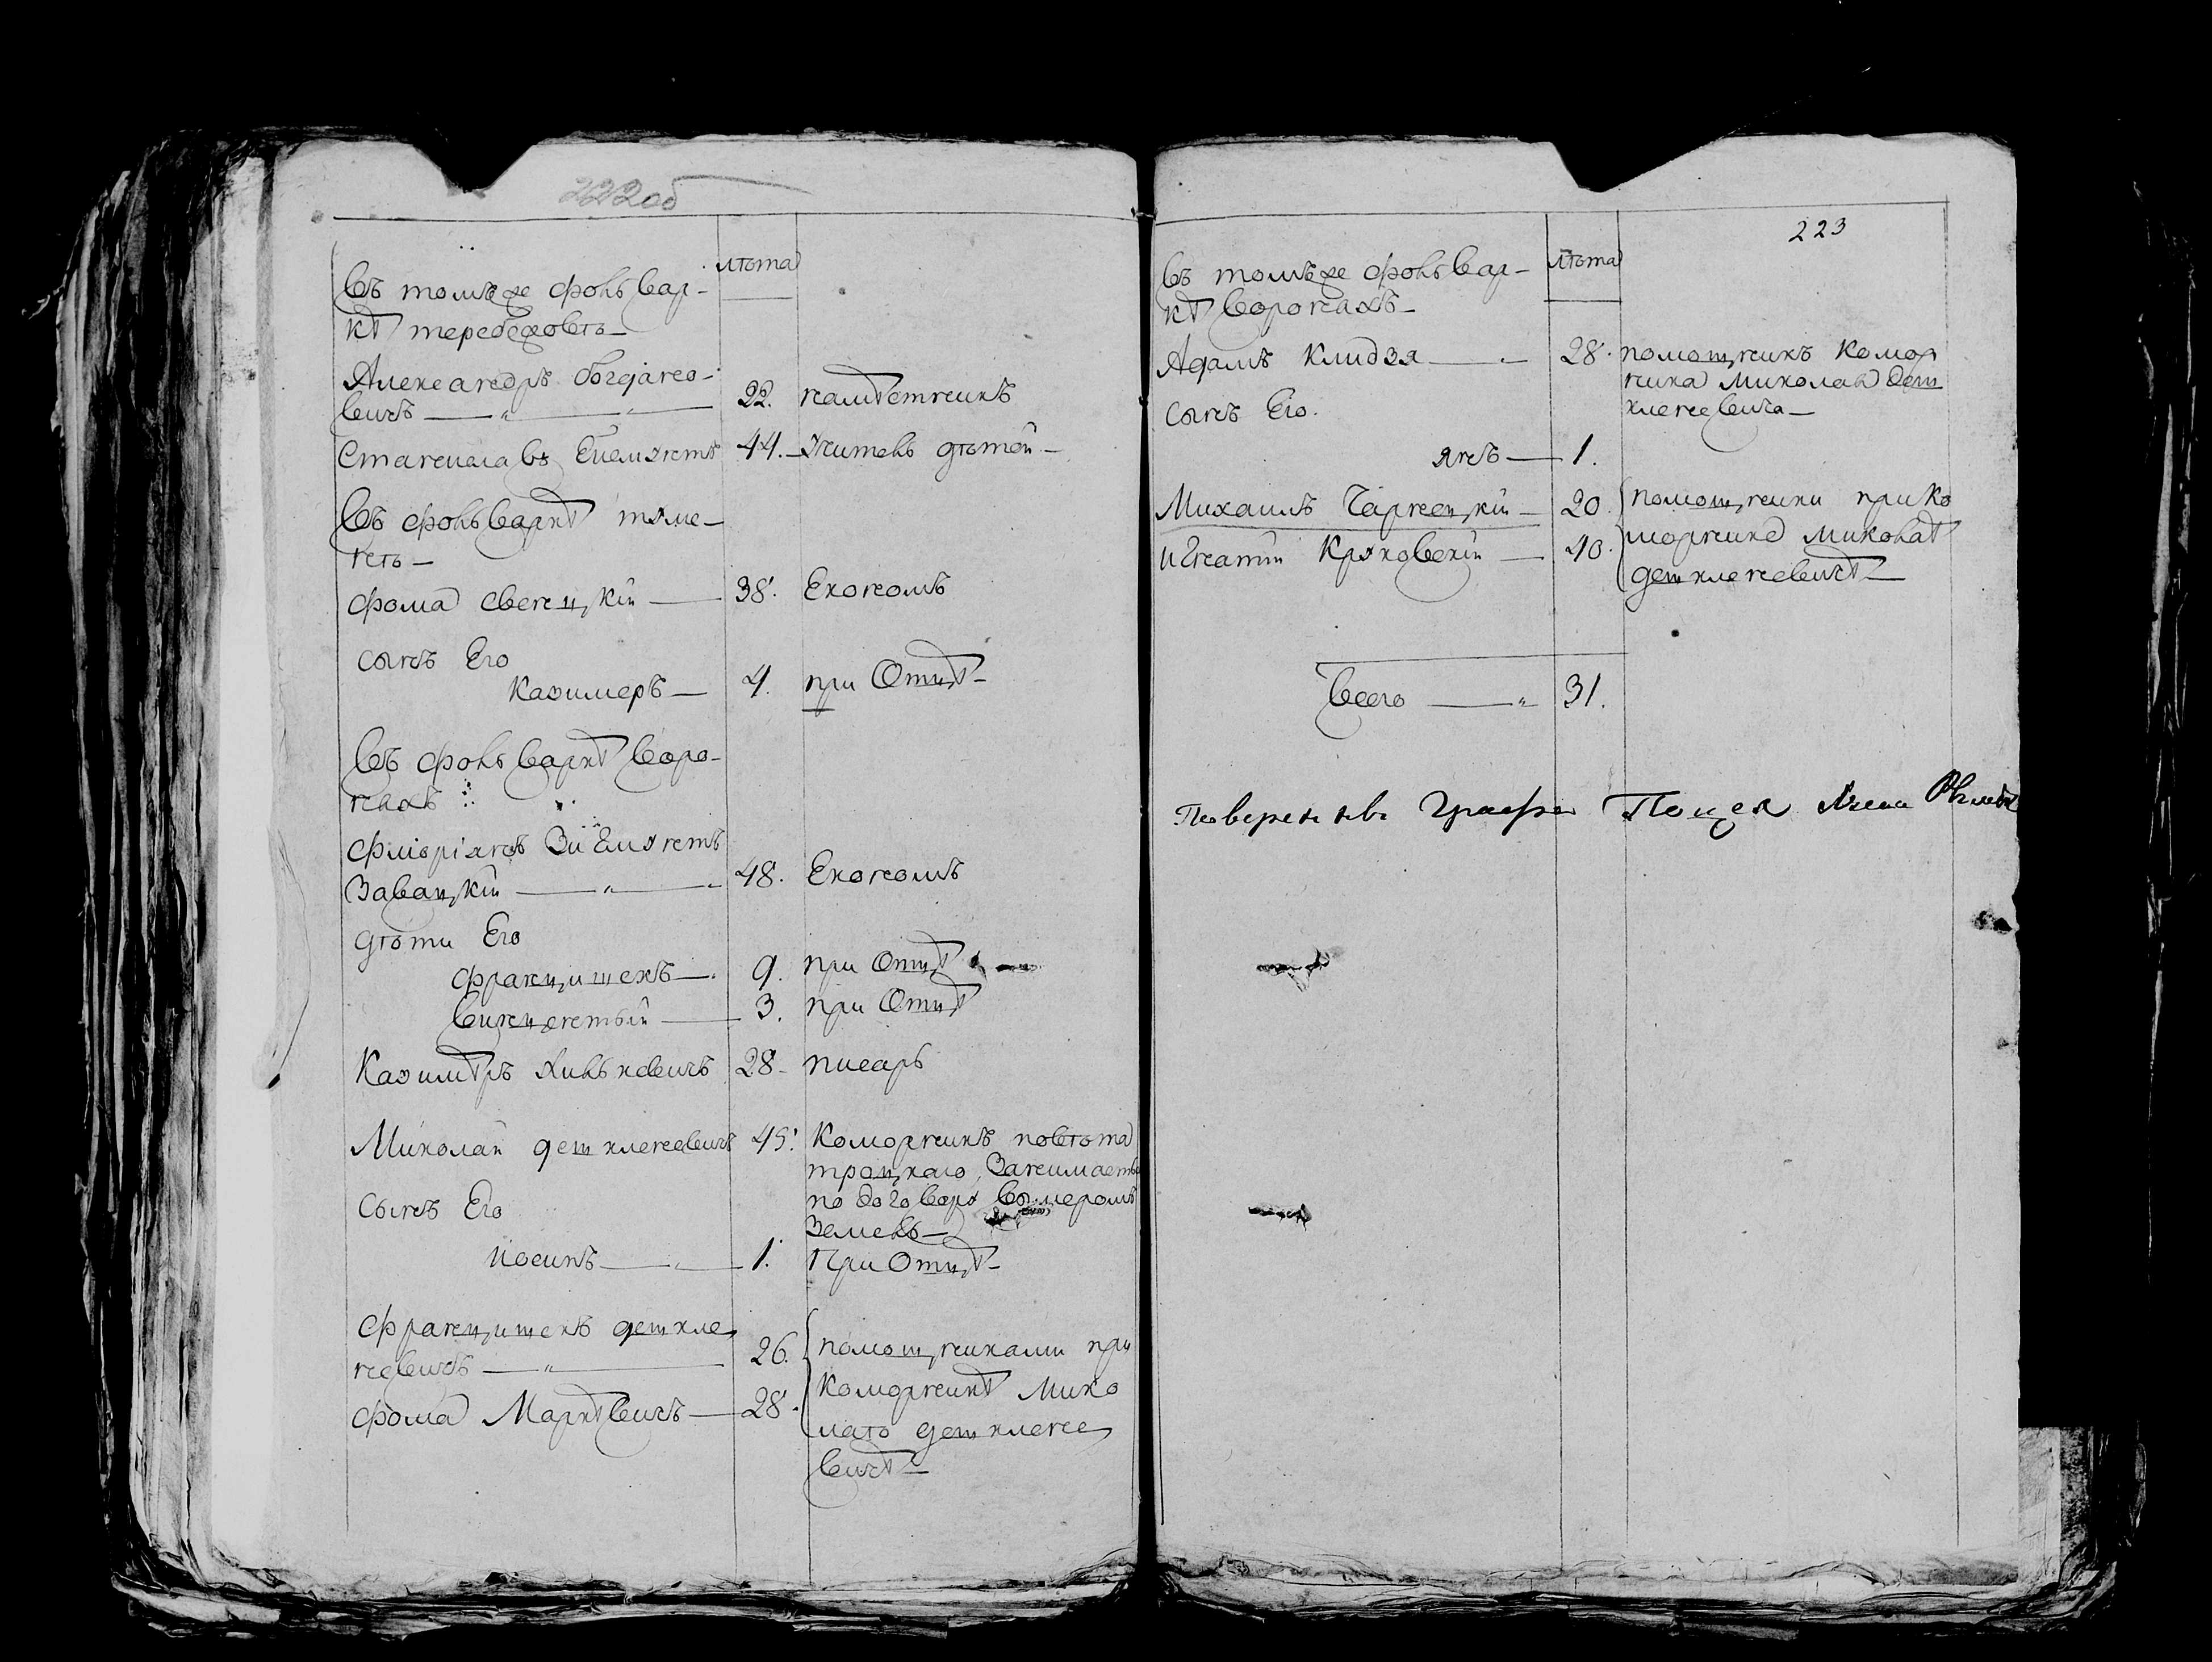 222об
лѣта
Въ томъ же фольвар-
кѣ тережовѣ
Александръ Богдано-
вичъ 22. намѣстникъ
Станислава 44. учитель дѣтей
Въ фольваркѣ тюме-
нѣ
Фома Свенцкій 38. Економъ
Сынъ Его
Казимеръ 4. при Отцѣ
Въ фольваркѣ Воро-
нахъ
Флоріянъ Зигмунтъ
Завацкій 48. Економъ
дѣти Его
Францишекъ 9. при Отцѣ
Винцентый 3. при Отцѣ
Казимѣръ 28 писарь
Миколай дешкленевичъ 45. Коморникъ повѣта
троцкаго, Занимаетъ
по договору вымеромъ
Земель
Сынъ Его
Иосипъ 1. При Отцѣ
Францишекъ дешкле
невичъ 26. помощниками при
Коморникѣ Мико
Фома Маркѣвичъ 28. лаѣ дешклене
вичѣ
223
лѣта
Въ томъ же фольвар-
кѣ Воронахъ
Адамъ Климзя 28. помощникъ Комор
ника Миколая деш
кленевича
Сынъ Его.
янъ 1.
Михаилъ Чарнецкій 20. помощники при Ко
морнике Миколаѣ
Игнатій Кряковскій 40. дешкленевичѣ
Всего 31.
Поверенный Графа Поцея